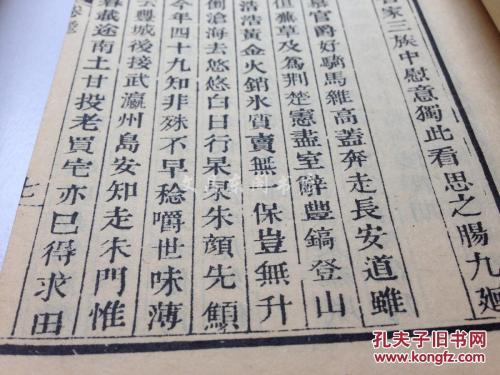 家三族中慰意獨此看思之腸九廻
慰官爵好騎馬雜高蓋奔走長安道雖
但蕪草及為荆楚憲盡室辭豐鎬登山
浩浩黃金火銷氷質賣無一保豈無升
倒滄海去悠悠白日行杲杲朱顔先顦
今年四十九知非殊不早稔嚼世味薄
云豐城後接武瀛州島安知走朱門惟
蔬途南土甘投老買宅亦已得求田
七
孔夫子旧书网
www.kongfz.com